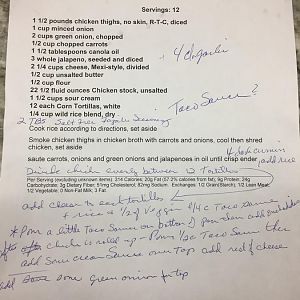 Servings: 12
1 1/2 pounds chicken thighs, no skin, R-T-C, diced
1 cup minced onion
2 cups green onion, chopped
1/2 cup chopped carrots
1 1/2 tablespoons canola oil
3 whole jalapeno, seeded and diced
2 1/4 cups cheese, Mexi-style, divided
1/2 cup unsalted butter
1/2 cup flour
22 1/2 fluid ounces Chicken stock, unsalted
1 1/2 cups sour cream
12 each Corn tortillas, White
1/4 cup wild rice blend, dry
+ 4 garlic
Taco Sauce?
2 TBS Salt Free Fajita Seasoning
Cook rice according to directions, set aside
Smoke chicken thighs in chicken broth with carrots and onions, cool then shred
chicken, set aside
saute carrots, onions and green onions and jalapenos in oil until crisp tender
add rice
Divide chicken evenly between 12 Tortillas
Per Serving (excluding unknown items): 314 Calories; 20g Fat (57.2% calories from fat); 9g Protein; 24g
Carbohydrate; 3g Dietary Fiber; 51mg Cholesterol; 82mg Sodium. Exchanges: 1/2 Grain(Starch); 1/2 Lean Meat;
1/2 Vegetable; 0 Non-Fat Milk; 3 Fat.
add cheese to each tortillas
+ rice + 1/2 of veggies 1/4 c Taco sauce
* Pour a little Taco Sauce on bottom of pan then add enchiladas
after chicken is rolled up - Pour 1/2 c Taco Sauce then
add Sour cream Sauce over Top add rest of cheese
add some green onion for top